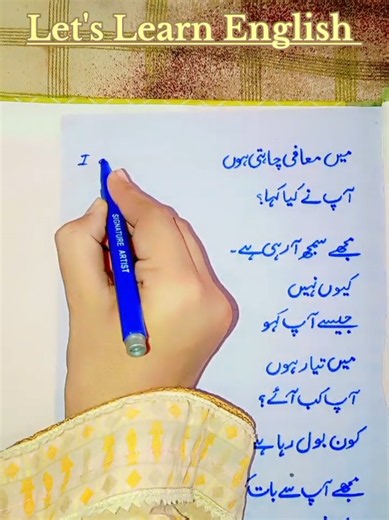 Let's Learn English
میں معافی چاہتی ہوں
I
آپ نے کیا کہا؟
مجھے سمجھ آ رہی ہے۔
کیوں نہیں
جیسے آپ کہو
میں تیار ہوں
آپ کب آئے؟
کون بول رہا ہے
مجھے آپ سے بات
SIGNATURE ARTIST